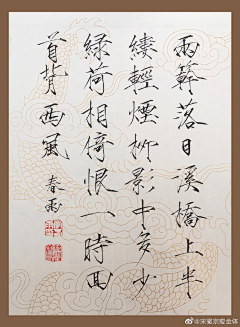 兩簳落日溪橋上半
縷輕煙柳影中多少
綠荷相倚恨一時回
首背西風 春雨
@宋徽宗瘦金体